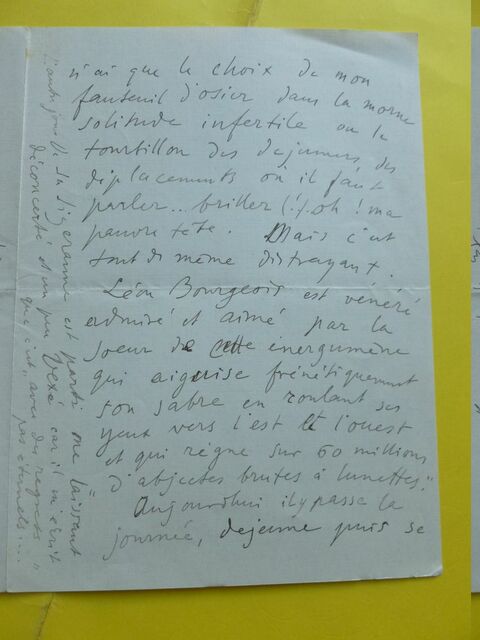 n'ai que le choix de mon
fauteuil d'osier dans la morne
solitude infertile ou le
tourbillon des dejeuners, des
déplacements où il faut
parler... briller (!) oh ! ma
pauvre tête. Mais c'est
tout de même distrayant.
Léon Bourgeois est vénéré
admiré et aimé par la
soeur de cette énergumène
qui aiguise frénétiquement
son sabre en roulant ses
yeux vers l'est et l'ouest
et qui règne sur 60 millions
d'abjectes brutes à lunettes."
Aujourdhui il y passe la
journée, dejeune puis se
de La Sizeranne est parti me laissant
déconcerté et un peu vexé car il m'écrit
que c'est "avec des regrets"
pas éternels...